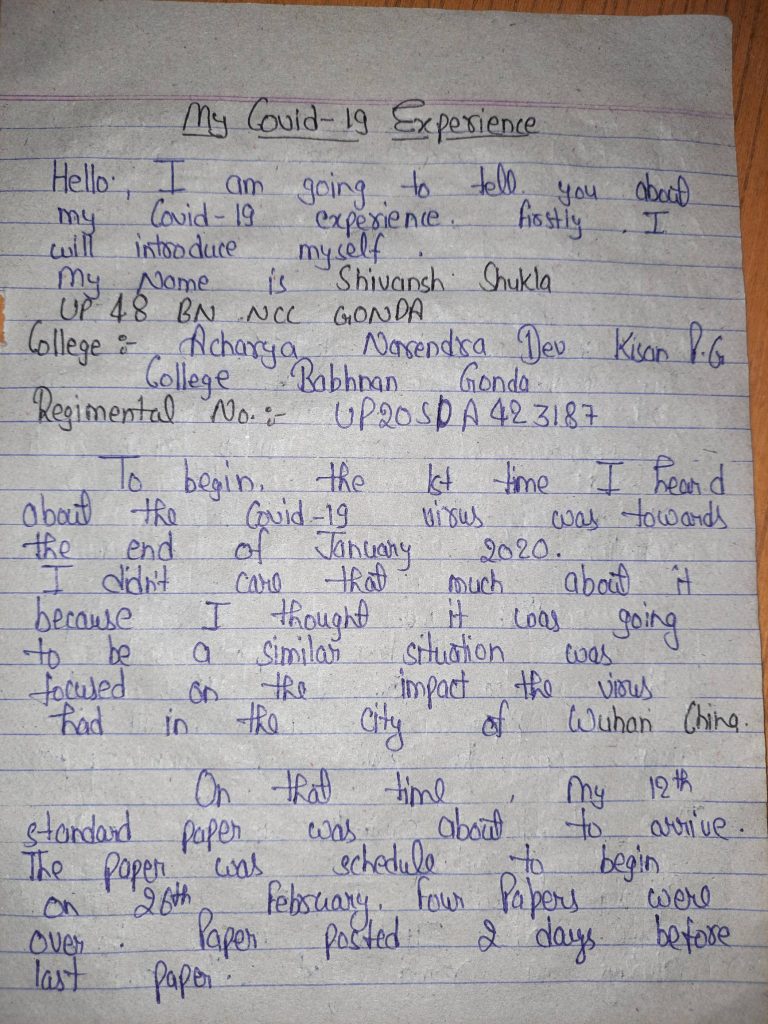 My Covid-19 Experience
Hello, I am going to tell you about
my Covid-19 experience. firstly I
will introduce myself.
My Name is Shivansh Shukla
UP 48 BN NCC GONDA
College :- Acharya Narendra Dev Kisan P.G
College Babhnan Gonda
Regimental No. :- UP20SDA423187
To begin, the 1st time I heard
about the Covid-19 virus was towards
the end of January 2020.
I didn't care that much about it
because I thought it was going
to be a similar situation was
focused on the impact the virus
had in the city of Wuhan China.
On that time, my 12th
standard paper was about to arrive.
The paper was schedule to begin
on 26th February. Four Papers were
over. Paper posted 2 days before
last paper.